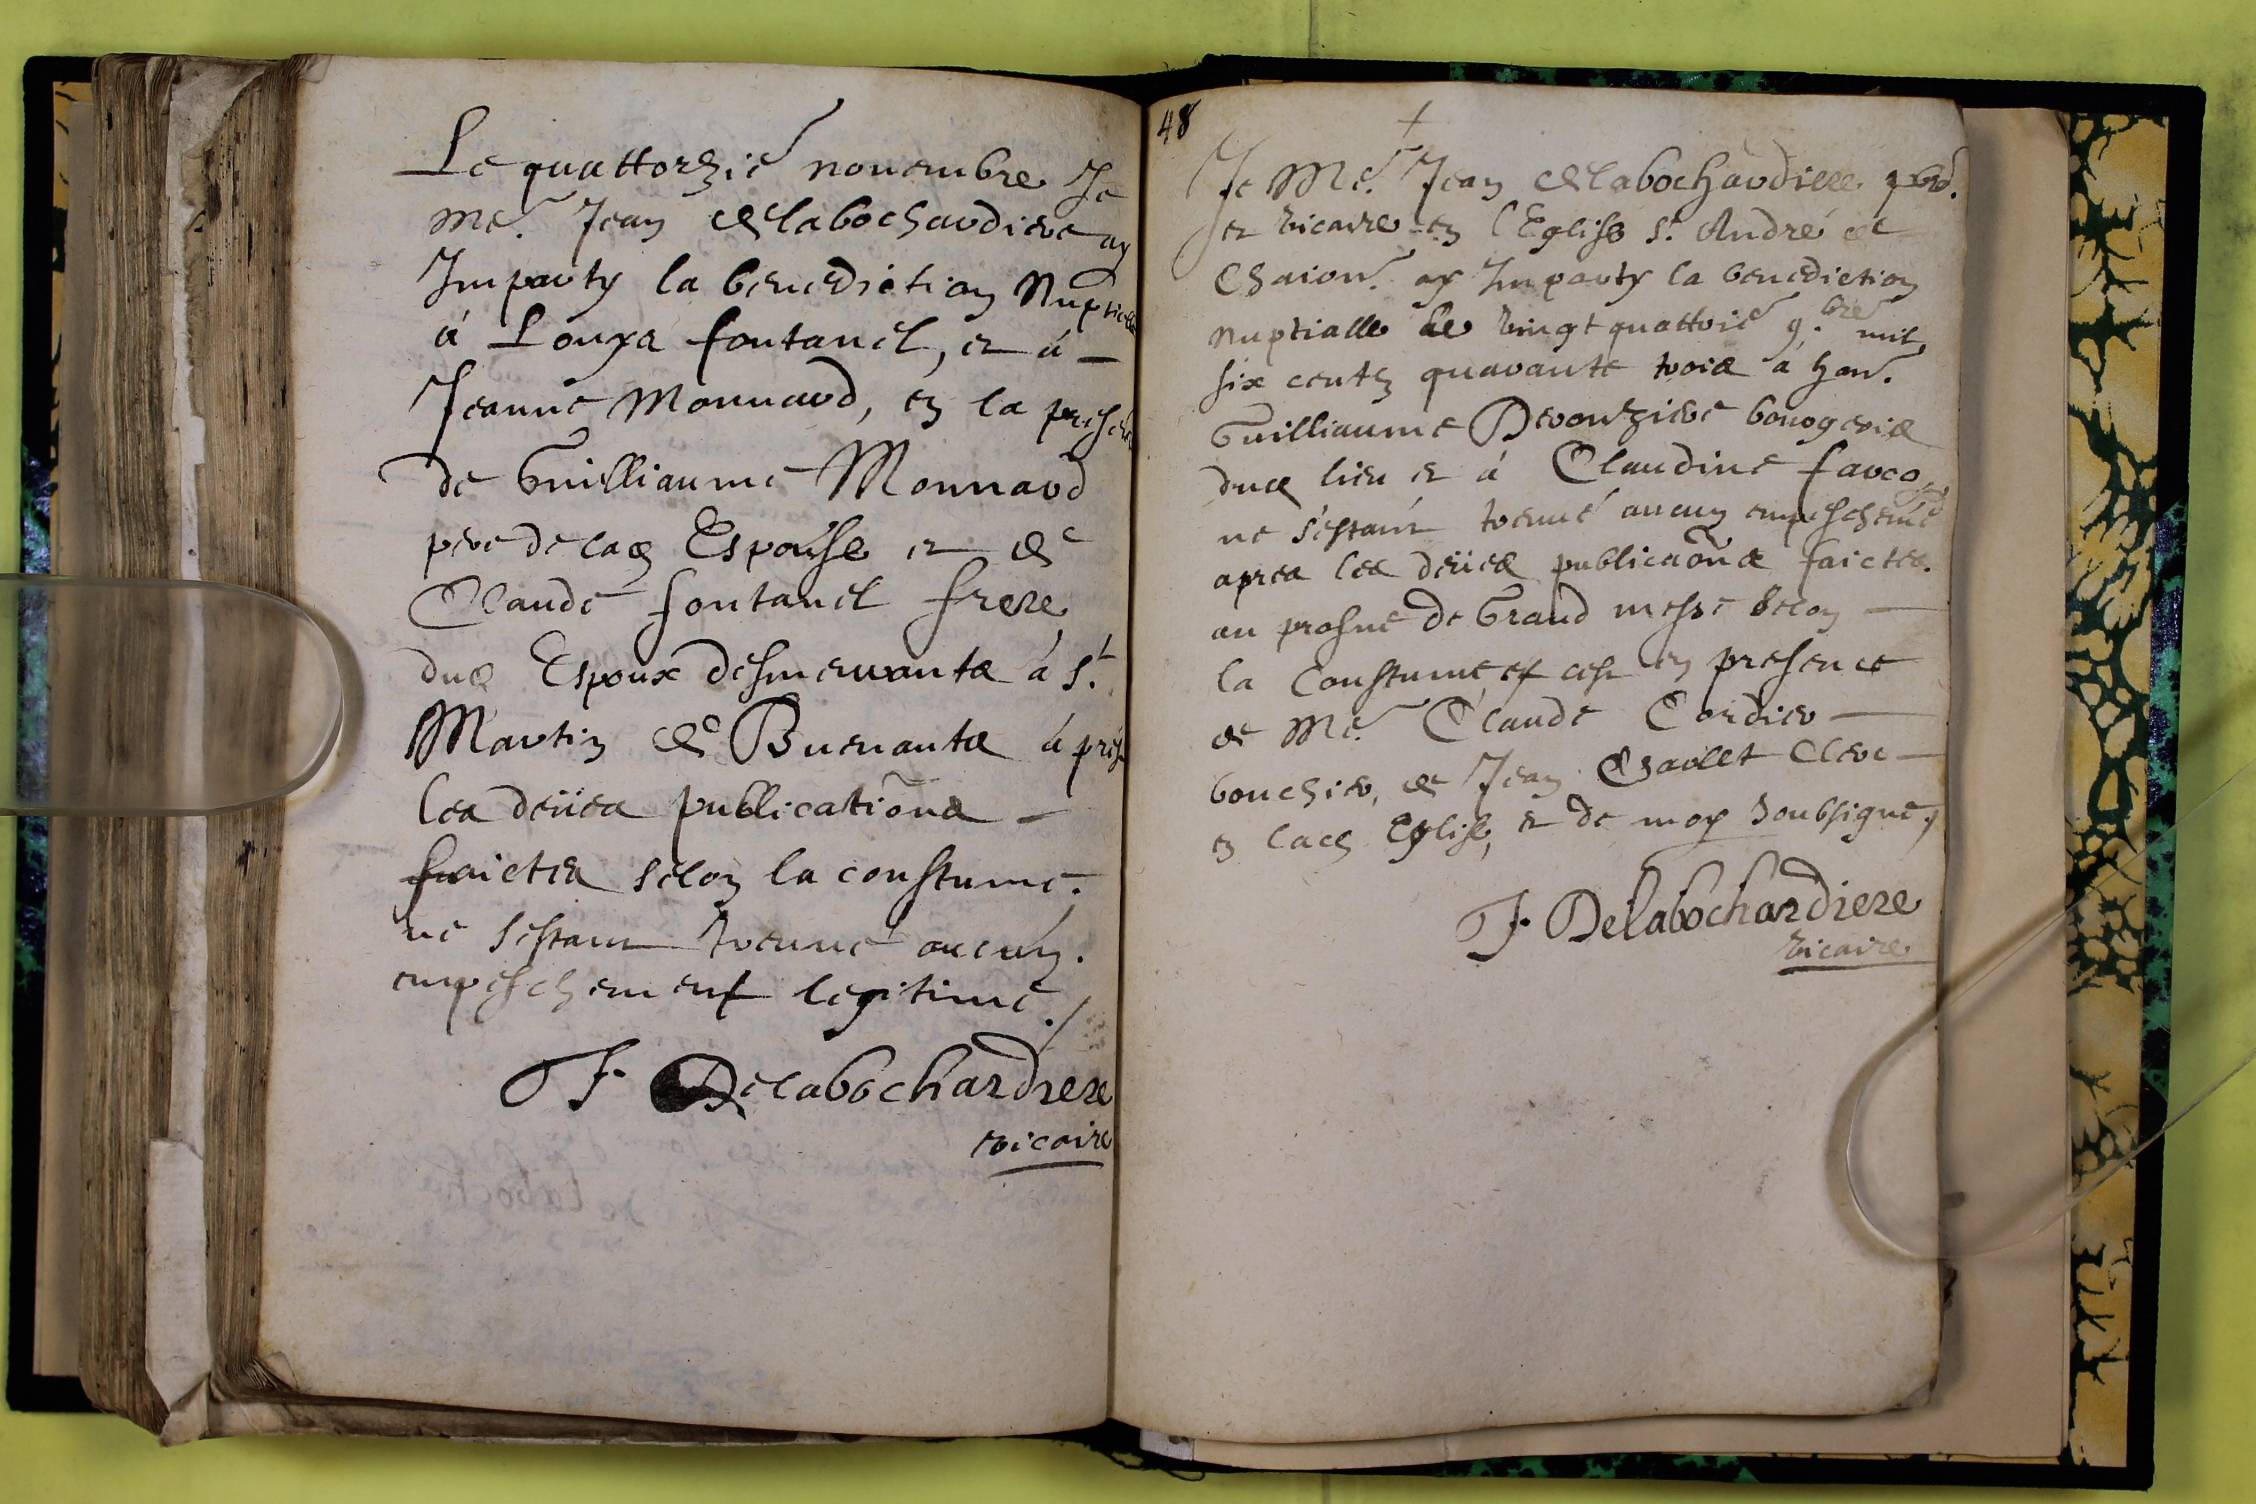 Le quattorzie novembre Je
me. Jean Delabochardiere ay
Imparty la benediction Nuptialle
à Louys fontanel, et à –
Jeanne Monnard, en la presence
de Guilliaume Monnard
pere de lad Espouse et de
Claude fontanel frere
dud Espoux demeurants à St.
Martin de Buenants à pres
les deües publications –
faictes selon la coustume.
ne sestant treuvé aucun.
empeschement legitime ./
J. Delabochardiere
vicaire
48
Je Me. Jean Delabochardiere pbre.
et vicaire en l'Eglise St. André de
Charion. ay Imparty la benediction
nuptialle le vingt quattrie 9.bre mil
six centz quarante trois à hon.
Guilliaume Deronziere bourgeois
dud lieu et à Claudine farco
ne s'estant treuvé aucun empeschemet
apres les deües publicaons faictes.
au prosne de Grand messe selon –
la Coustume, et cest en presence
de Me. Claude Cordier –
bouchier, de Jean Charlet Clerc –
en lad Eglise, et de moy soubsigne,
J. Delabochardiere
vicaire